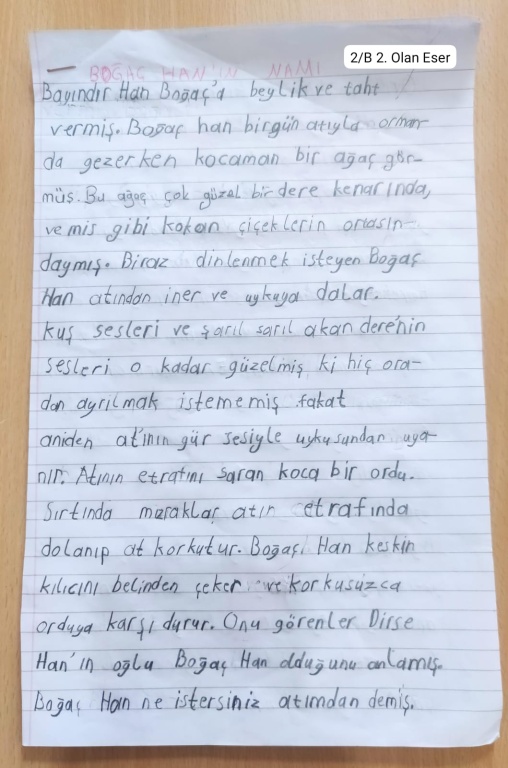 2/B 2. Olan Eser
BOĞAÇ HAN'IN NAMI
Bayındır Han Boğaç'a beylik ve taht
vermiş. Boğaç han birgün atıyla orman-
da gezerken kocaman bir ağaç gör-
müş. Bu ağaç çok güzel bir dere kenarında,
ve mis gibi kokan çiçeklerin ortasın-
daymış. Biraz dinlenmek isteyen Boğaç
Han atından iner ve uykuya dalar.
kuş sesleri ve şarıl şarıl akan dere'nin
sesleri o kadar güzelmiş ki hiç ora-
dan ayrılmak istememiş fakat
aniden at'ının gür sesiyle uykusundan uya-
nır. Atının etrafını saran koca bir ordu.
Sırtında mızraklar atın etrafında
dolanıp at korkutur. Boğaç Han keskin
kılıcını belinden çeker ve korkusuzca
orduya karşı durur. Onu görenler Dirse
Han'ın oğlu Boğaç Han olduğunu anlamış.
Boğaç Han ne istersiniz atımdan demiş.